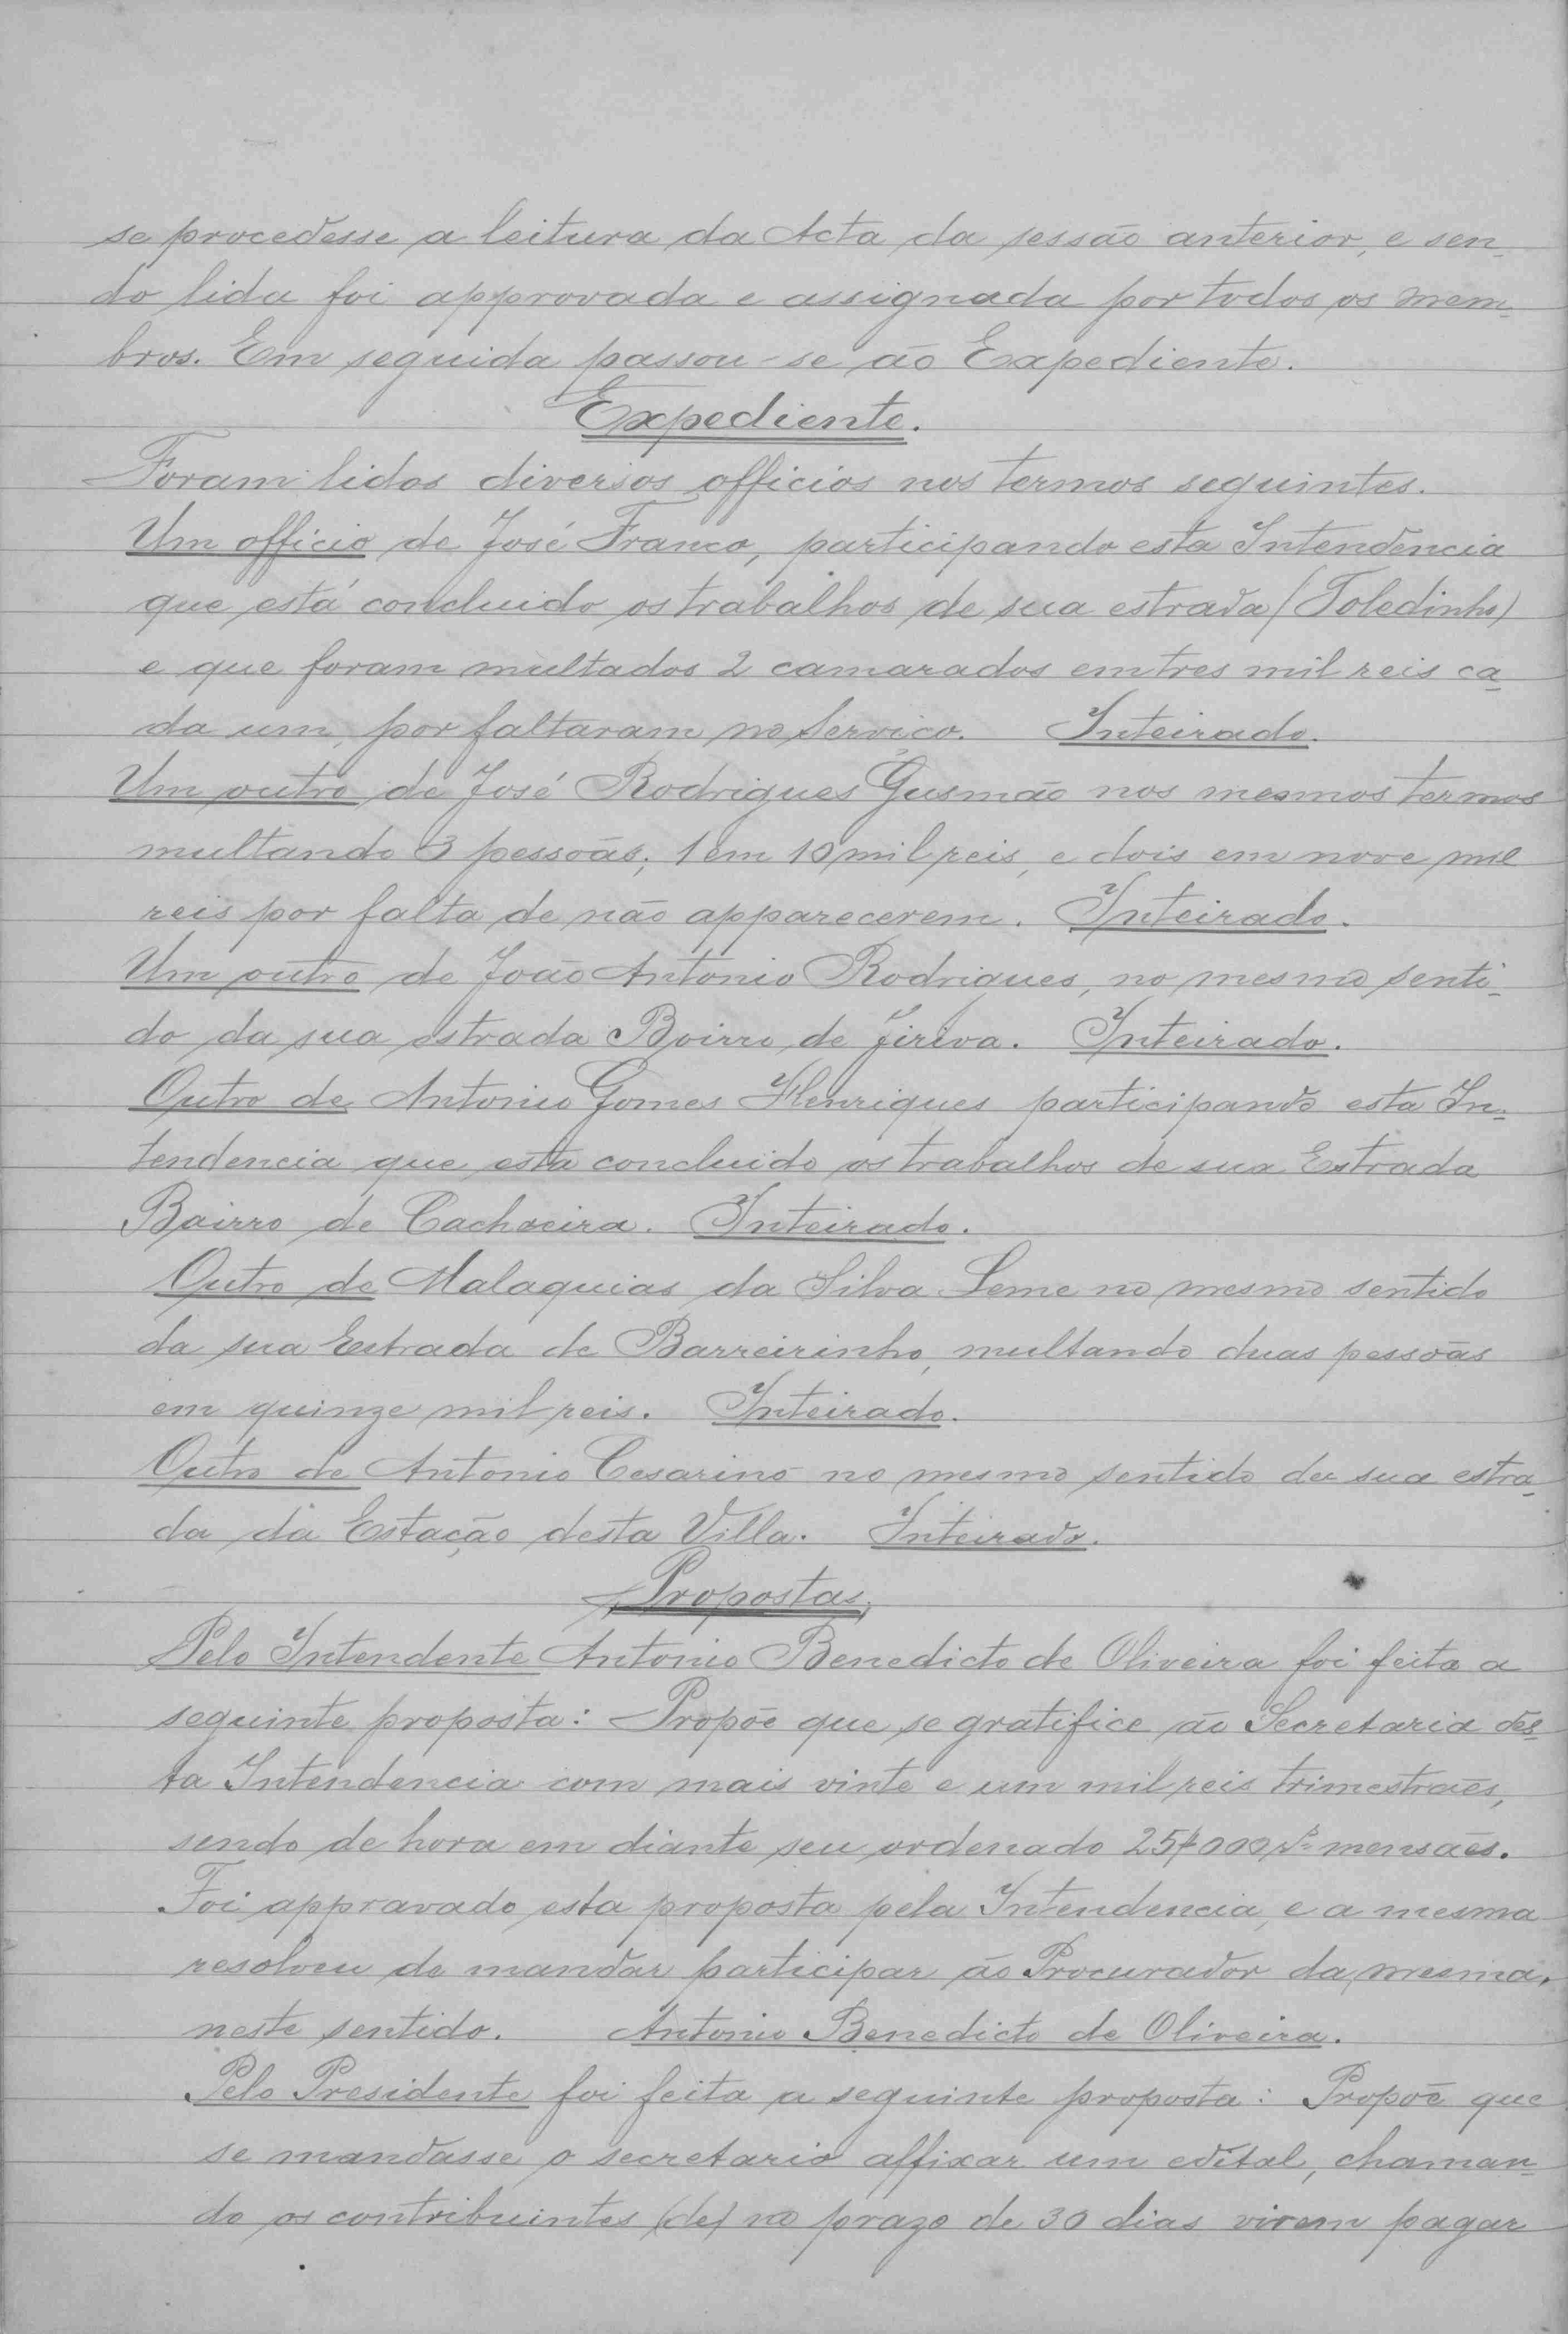 se procedesse a leitura da Acta da sessão anterior, e sen-
do lida foi approvada e assignada por todos os mem-
bros. Em seguida passou-se ão Expediente.
Expediente.
Foram lidos diversos officios nos termos seguintes.
Um officio de José Franco, participando esta Intendencia
que está concluido os trabalhos de sua estrada (Toledinho)
e que foram multados 2 camarados em tres mil reis ca-
da um, por faltaram no serviço. Inteirado.
Um outro de José Rodrigues Gusmão nos mesmos termos
multando 3 pessoãs, 1 em 10 mil reis, e dois em nove mil
reis por falta de não apparecerem. Inteirado.
Um outro de João Antonio Rodrigues, no mesmo senti-
do da sua estrada Bairro de Jiriva. Inteirado.
Outro de Antonio Gomes Henriques participando esta In-
tendencia que esta concluido os trabalhos de sua Estrada
Bairro de Cachoeira. Inteirado.
Outro de Malaquias da Silva Leme no mesmo sentido
da sua Estrada de Barreirinho, multando duas pessoãs
em quinze mil reis. Inteirado.
Outro de Antonio Cesarino no mesmo sentido da sua estra-
da da Estação desta Villa. Inteirado.
Propostas,
Pelo Intendente Antonio Benedicto de Oliveira foi feita a
seguinte proposta: Propõe que se gratifice ão Secretaria des-
ta Intendencia com mais vinte e um mil reis trimestraēs,
sendo de hora em diante seu ordenado 25$000 rs mensaēs.
Foi appravado esta proposta pela Intendencia, e a mesma
resolveu de mandar participar ão Procurador da mesma,
neste sentido. Antonio Benedicto de Oliveira.
Pelo Presidente foi feita a seguinte proposta: Propoē que
se mandasse o secretario affixar um edital, chaman-
do os contribuintes (de) no prazo de 30 dias virem pagar